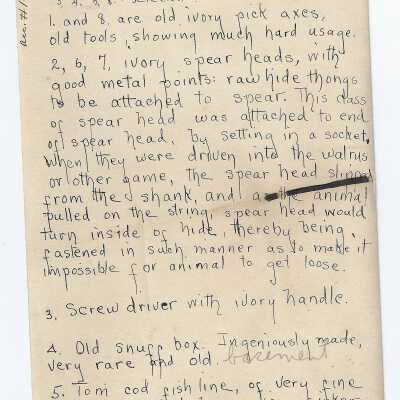 1. and 8. are old ivory pick axes,
old tools, showing much hard usage.
2, 6, 7, ivory spear heads, with
good metal points: rawhide thongs
to be attached to spear. This class
of spear head was attached to end
of spear head, by setting in a socket.
When they were driven into the walrus
or other game, the spear head slipped
from the shank, and as the animal
pulled on the string, spear head would
turn inside of hide, thereby being
fastened in such manner as to make it
impossible for animal to get loose.
3. Screw driver with ivory handle.
4. Old snuff box. Ingeniously made,
very rare and old. basement
5. Tom cod fish line, of very fine